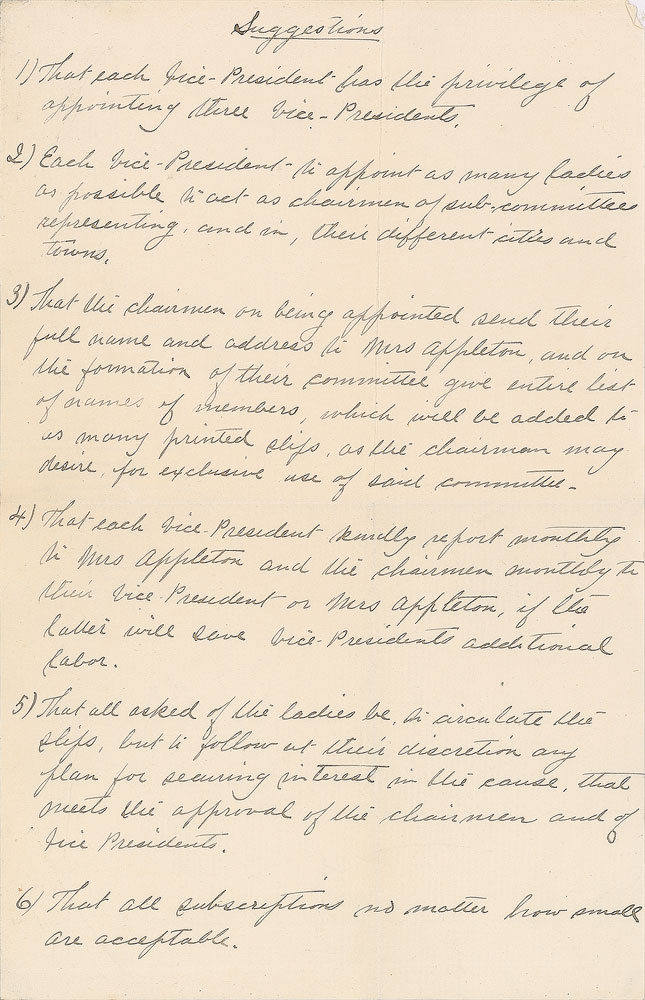 Suggestions
1) That each Vice-President has the privilege of
appointing three Vice-Presidents.
2) Each Vice-President to appoint as many ladies
as possible to act as chairmen of sub-committees
representing, and in, their different cities and
towns.
3) That the chairmen on being appointed send their
full name and address to Mrs Appleton, and on
the formation of their committee give entire list
of names of members, which will be added to
as many printed slips, as the chairman may
desire, for exclusive use of said committee-
4) That each Vice-President kindly report monthly
to Mrs Appleton and the chairmen monthly to
their Vice-President or Mrs Appleton, if the
latter will save Vice-Presidents additional
labor.
5) That all asked of the ladies be, to circulate the
slips, but to follow at their discretion any
plan for securing interest in the cause, that
meets the approval of the chairmen and of
Vice Presidents.
6) That all subscriptions no matter how small
are acceptable.